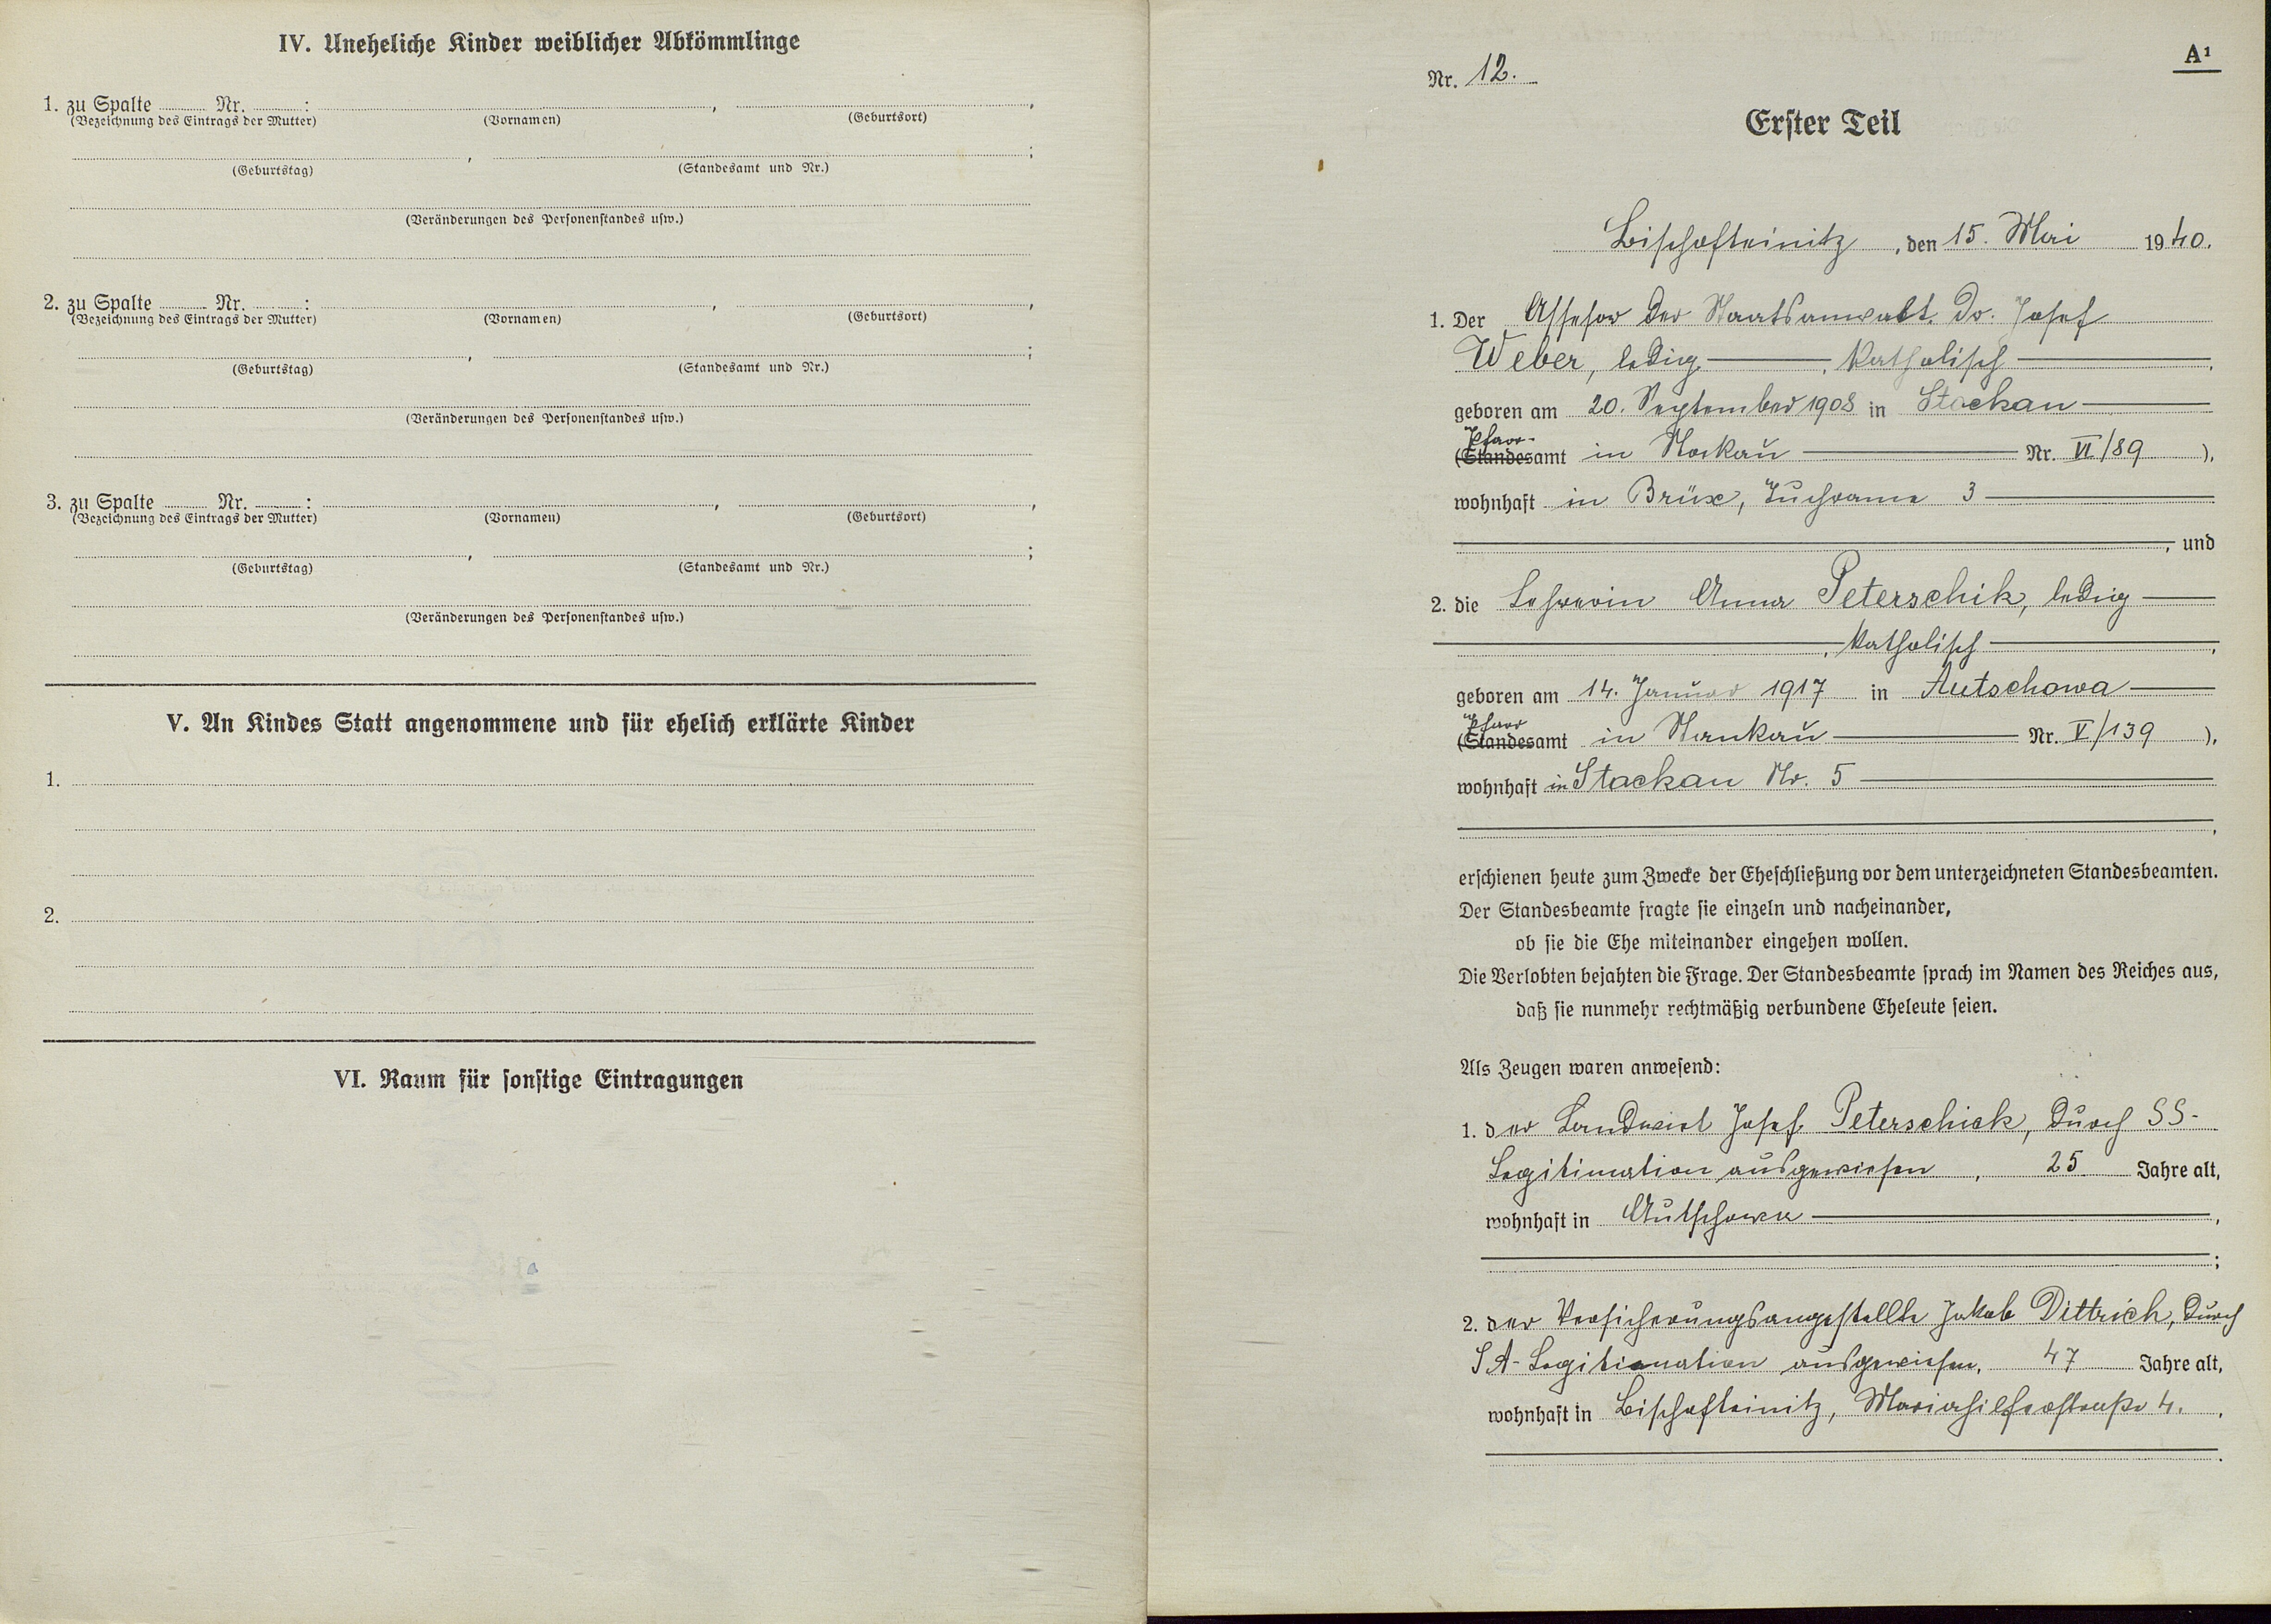 IV. Uneheliche Kinder weiblicher Abkömmlinge
1. zu Spalte ........ Nr. ........ :
(Bezeichnung des Eintrags der Mutter) (Vornamen) (Geburtsort)
(Geburtstag) (Standesamt und Nr.)
(Veränderungen des Personenstandes usw.)
2. zu Spalte ........ Nr. ........ :
(Bezeichnung des Eintrags der Mutter) (Vornamen) (Geburtsort)
(Geburtstag) (Standesamt und Nr.)
(Veränderungen des Personenstandes usw.)
3. zu Spalte ........ Nr. ........ :
(Bezeichnung des Eintrags der Mutter) (Vornamen) (Geburtsort)
(Geburtstag) (Standesamt und Nr.)
(Veränderungen des Personenstandes usw.)
V. An Kindes Statt angenommene und für ehelich erklärte Kinder
1.
2.
VI. Raum für sonstige Eintragungen
A1
Nr. 12.
Erster Teil
Bischofteinitz, den 15. Mai 1940.
1. Der Assesor der Staatsanwalt. Dr. Josef
Weber, ledig, katholisch,
geboren am 20. September 1908 in Stockau
Pfarr-
(Standesamt in Stockau Nr. VI/89 ),
wohnhaft in Brüx, 3
, und
2. die Lehrerin Anna Peterschik, ledig
, katholisch,
geboren am 14. Januar 1917 in Autschowa
Pfarr
(Standesamt in Nr. V/139 ),
wohnhaft in Stockau Nr. 5
erschienen heute zum Zwecke der Eheschließung vor dem unterzeichneten Standesbeamten.
Der Standesbeamte fragte sie einzeln und nacheinander,
ob sie die Ehe miteinander eingehen wollen.
Die Verlobten bejahten die Frage. Der Standesbeamte sprach im Namen des Reiches aus,
daß sie nunmehr rechtmäßig verbundene Eheleute seien.
Als Zeugen waren anwesend:
1. der Landwirt Josef Peterschick, durch SS-
Legitimation ausgewiesen, 25 Jahre alt,
wohnhaft in Autschowa,
;
2. der Versicherungsangestellte Jakob Dittrich, durch
SA-Legitimation ausgewiesen, 47 Jahre alt,
wohnhaft in Bischofteinitz, Mariahilferstraße 4.